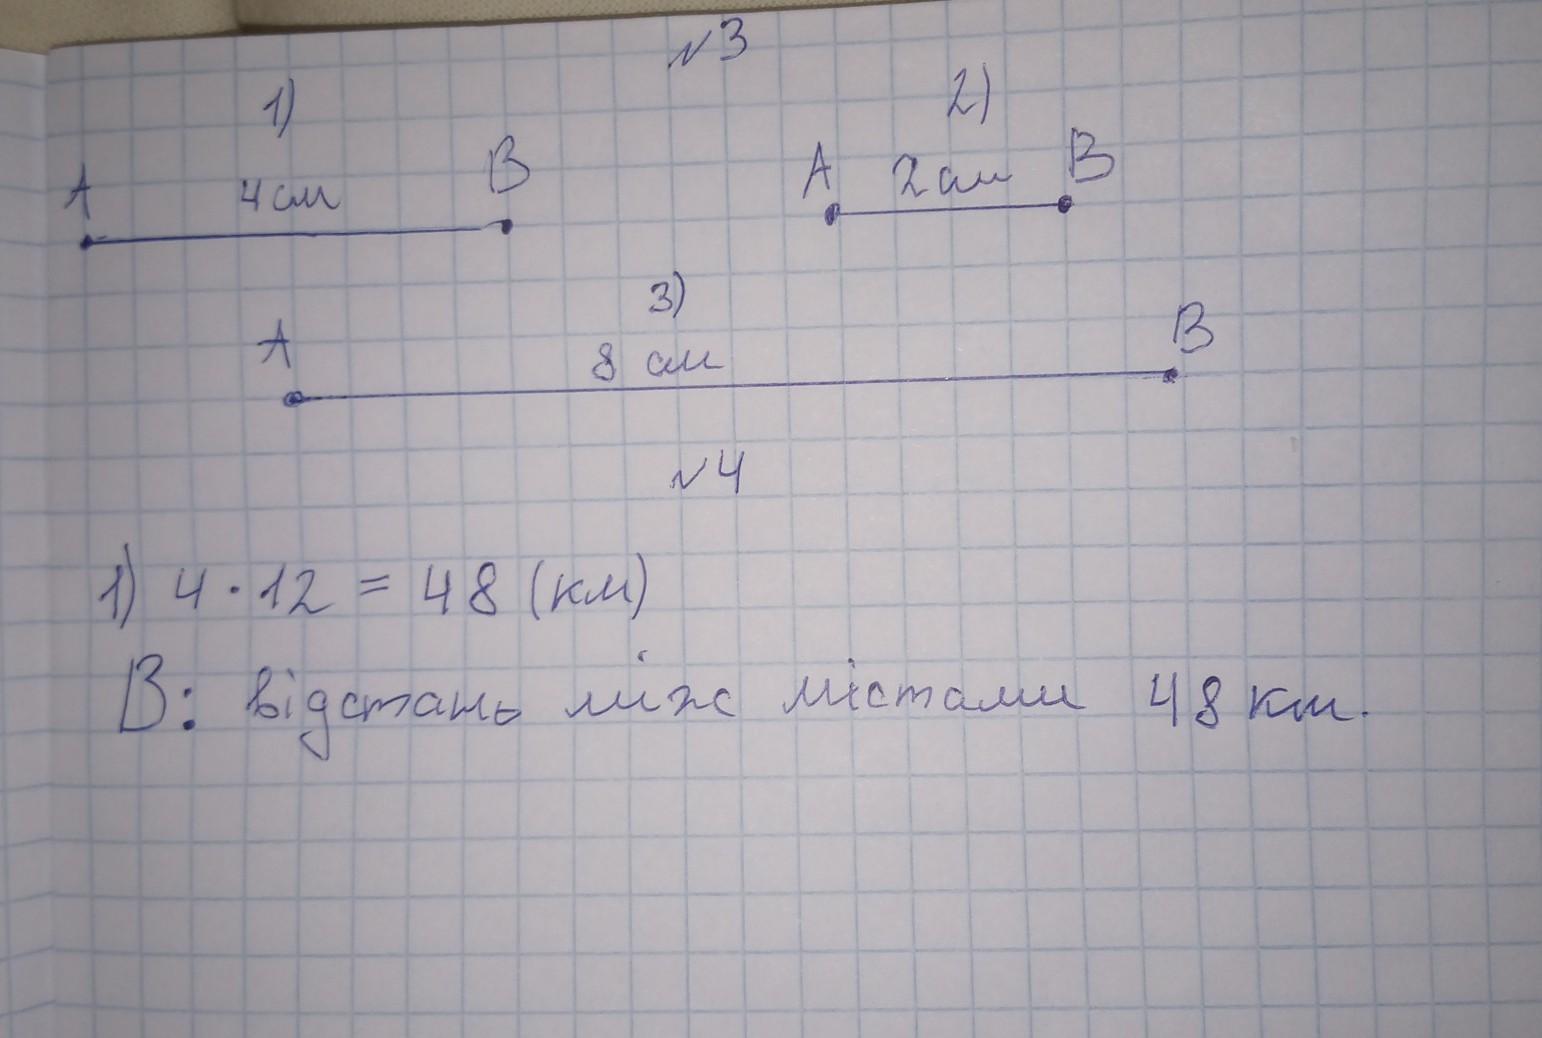 №3
1)
2)
A 4 см B
A 2 см B
3)
A 8 см B
№4
1) 4 · 12 = 48 (км)
В: відстань між містами 48 км.